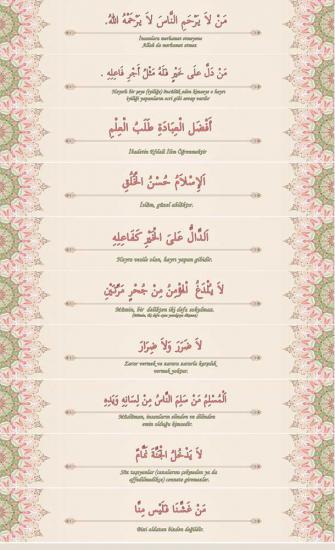 مَنْ لاَ يَرْحَمِ النَّاسَ لاَ يَرْحَمْهُ اللهُ.
İnsanlara merhamet etmeyene
Allah da merhamet etmez
مَنْ دَلَّ عَلَى خَيْرٍ فَلَهُ مِثْلُ أَجْرِ فَاعِلِهِ .
Hayırlı bir şeye (iyiliğe) öncülük eden kimseye o hayrı
iyiliği yapanların ecri gibi sevap vardır
أَفْضَلُ الْعِبَادَةِ طَلَبُ الْعِلْمِ
İbadetin Efdali İlim Öğrenmektir
اَلإِسْلاَمُ حُسْنُ الْخُلُقِ
İslâm, güzel ahlâktır.
اَلدَّالُّ عَلَى الْخَيْرِ كَفَاعِلِهِ
Hayra vesile olan, hayrı yapan gibidir.
لاَ يُلْدَغُ الْمُؤْمِنُ مِنْ جُحْرٍ مَرَّتَيْنِ
Mümin, bir delikten iki defa sokulmaz.
(Mümin, iki defa aynı yanılgıya düşmez)
لاَ ضَرَرَ وَلاَ ضِرَارَ
Zarar vermek ve zarara zararla karşılık
vermek yoktur.
اَلْمُسْلِمُ مَنْ سَلِمَ النَّاسُ مِنْ لِسَانِهِ وَيَدِهِ
Müslüman, insanların elinden ve dilinden
emin olduğu kimsedir.
لاَ يَدْخُلُ الْجَنَّةَ نَمَّامٌ
Söz taşıyanlar (cezalarını çekmeden ya da
affedilmedikçe) cennete giremezler.
مَنْ غَشَّنَا فَلَيْسَ مِنَّا
Bizi aldatan bizden değildir.